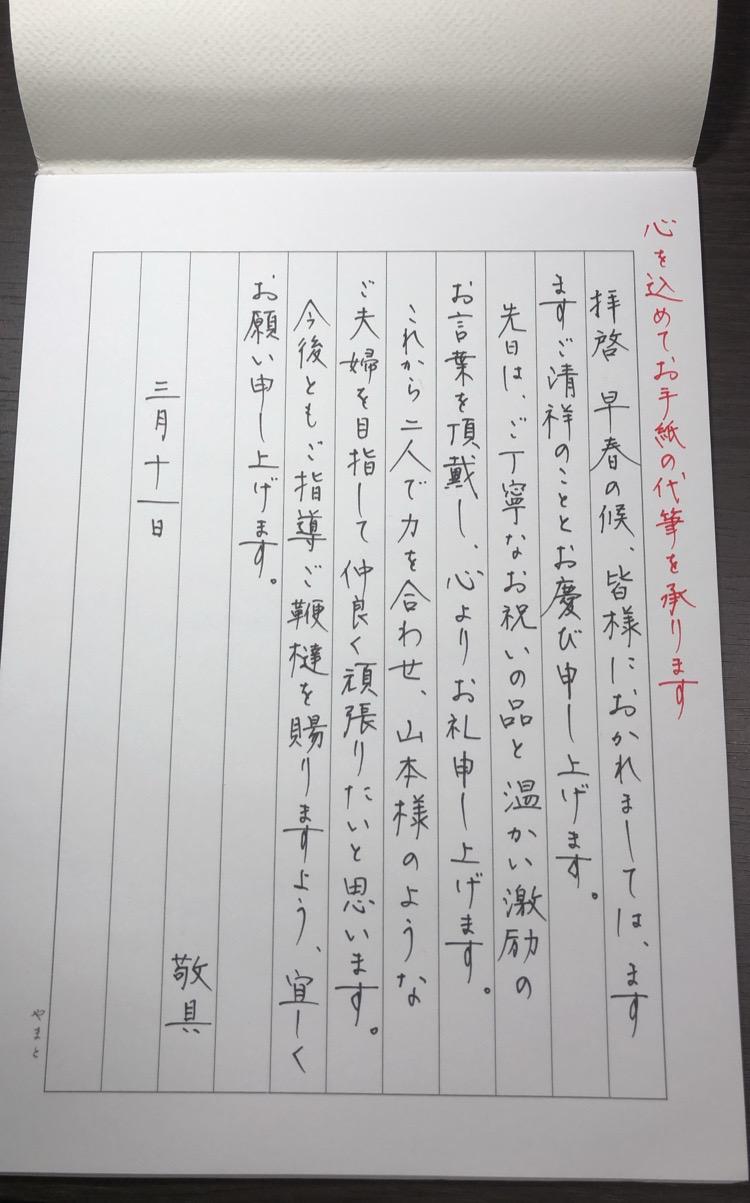 心を込めてお手紙の代筆を承ります
拝啓 早春の候、皆様におかれましては、ます
ますご清祥のこととお慶び申し上げます。
先日は、ご丁寧なお祝いの品と温かい激励の
お言葉を頂戴し、心よりお礼申し上げます。
これから二人で力を合わせ、山本様のような
ご夫婦を目指して仲良く頑張りたいと思います。
今後ともご指導ご鞭撻を賜りますよう、宜しく
お願い申し上げます。
敬具
三月十一日
やまと